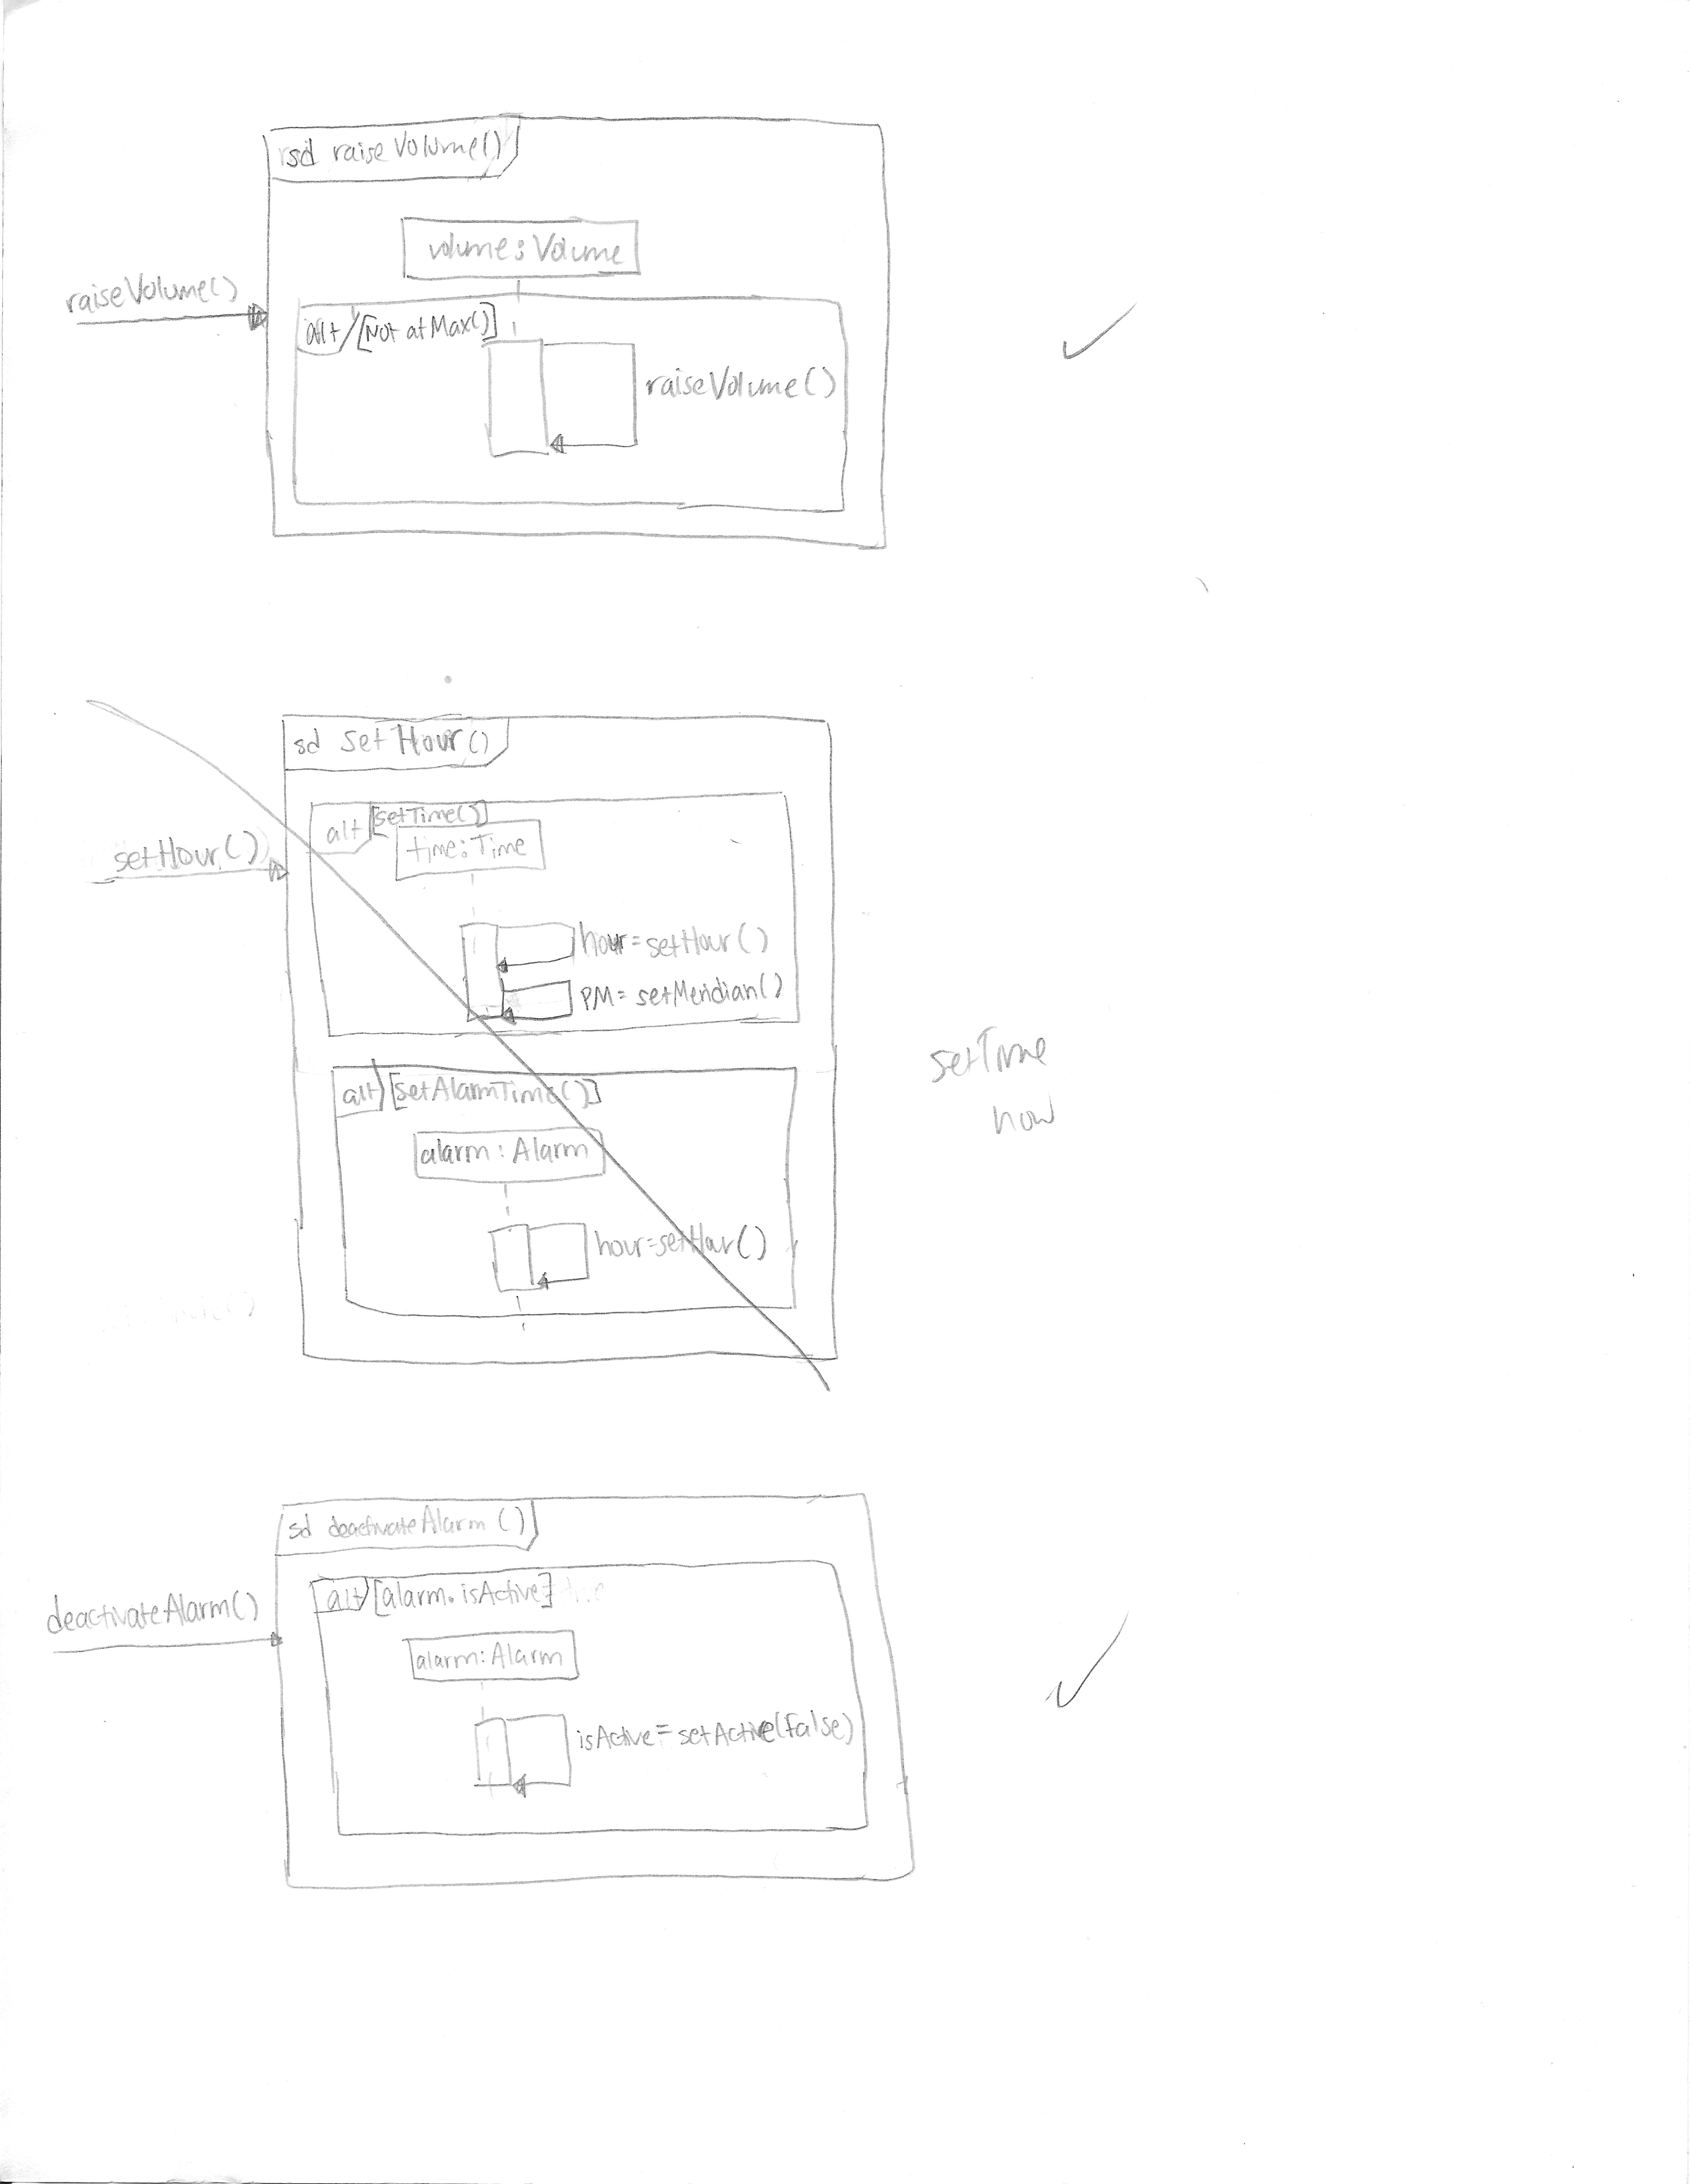 sd raiseVolume()
volume: Volume
raiseVolume()
alt [Not atMax()]
raiseVolume()
sd SetHour()
alt [setTime()]
time: Time
setHour()
hour=setHour()
PM= setMeridian()
setTime
now
alt [setAlarmTime()]
alarm: Alarm
hour=setHour()
sd deactivateAlarm ()
alt [alarm.isActive]
deactivateAlarm()
alarm: Alarm
isActive= setActive(False)